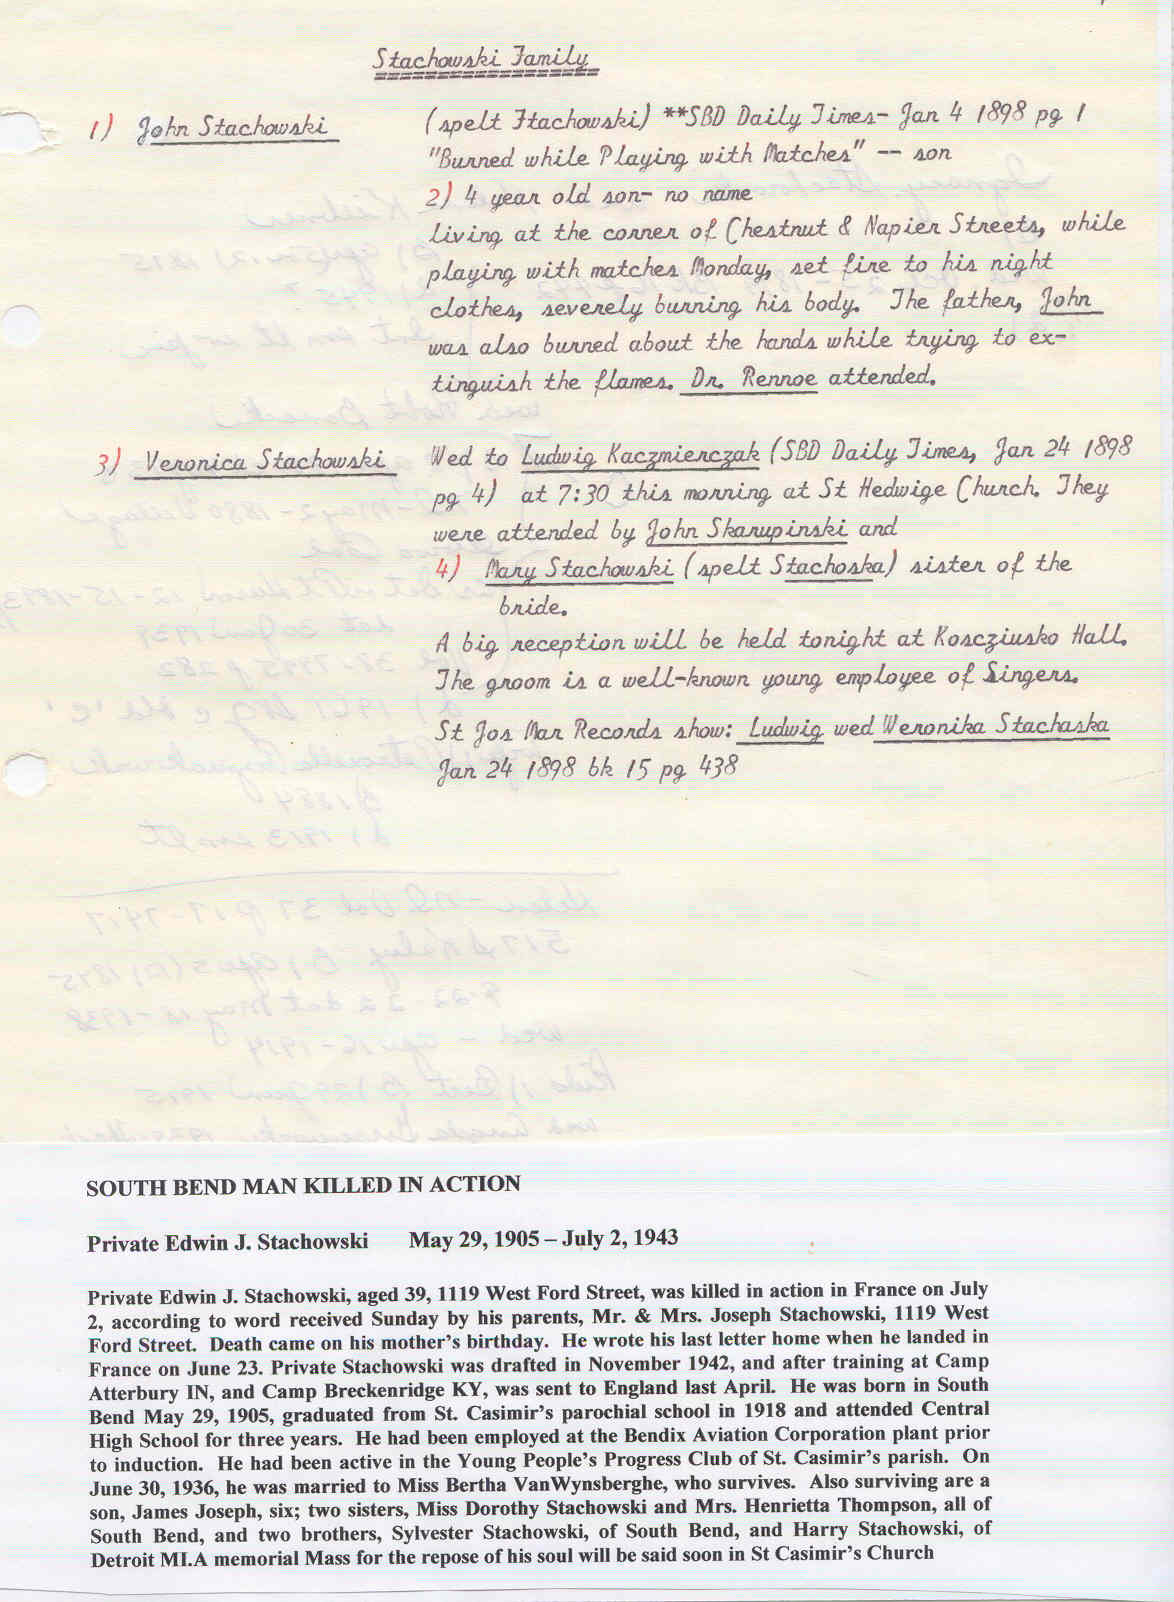 Stachowski Family
1) John Stachowski (spelt Ftachowski) **SBD Daily Times- Jan 4 1898 pg 1
"Burned while Playing with Matches" -- son
2) 4 year old son- no name
living at the corner of Chestnut & Napier Streets, while
playing with matches Monday, set fire to his night
clothes, severely burning his body. The father, John
was also burned about the hands while trying to ex-
tinguish the flames. Dr. Rennoe attended.
3) Veronica Stachowski Wed to Ludwig Kaczmierczak (SBD Daily Times, Jan 24 1898
pg 4) at 7:30 this morning at St Hedwige Church. They
were attended by John Skarupinski and
4) Mary Stachowski (spelt Stachoska) sister of the
bride.
A big reception will be held tonight at Koscziusko Hall.
The groom is a well-known young employee of Singers.
St Jos Mar Records show: Ludwig wed Weronika Stachaska
Jan 24 1898 bk 15 pg 438
SOUTH BEND MAN KILLED IN ACTION
Private Edwin J. Stachowski May 29, 1905 – July 2, 1943
Private Edwin J. Stachowski, aged 39, 1119 West Ford Street, was killed in action in France on July
2, according to word received Sunday by his parents, Mr. & Mrs. Joseph Stachowski, 1119 West
Ford Street. Death came on his mother's birthday. He wrote his last letter home when he landed in
France on June 23. Private Stachowski was drafted in November 1942, and after training at Camp
Atterbury IN, and Camp Breckenridge KY, was sent to England last April. He was born in South
Bend May 29, 1905, graduated from St. Casimir's parochial school in 1918 and attended Central
High School for three years. He had been employed at the Bendix Aviation Corporation plant prior
to induction. He had been active in the Young People's Progress Club of St. Casimir's parish. On
June 30, 1936, he was married to Miss Bertha VanWynsberghe, who survives. Also surviving are a
son, James Joseph, six; two sisters, Miss Dorothy Stachowski and Mrs. Henrietta Thompson, all of
South Bend, and two brothers, Sylvester Stachowski, of South Bend, and Harry Stachowski, of
Detroit MI.A memorial Mass for the repose of his soul will be said soon in St Casimir's Church